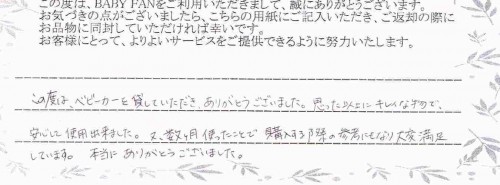 この度は、BABY FANをご利用いただきまして、誠にありがとうございます。
お気づきの点がございましたら、こちらの用紙にご記入いただき、ご返却の際に
お品物に同封していただければ幸いです。
お客様にとって、よりよいサービスをご提供できるように努力いたします。
この度は、ベビーカーを貸していただき、ありがとうございました。思った以上にキレイなもので、
安心して使用出来ました。又、数ヶ月使ったことで購入する際の参考にもなり大変満足
しています。本当にありがとうございました。